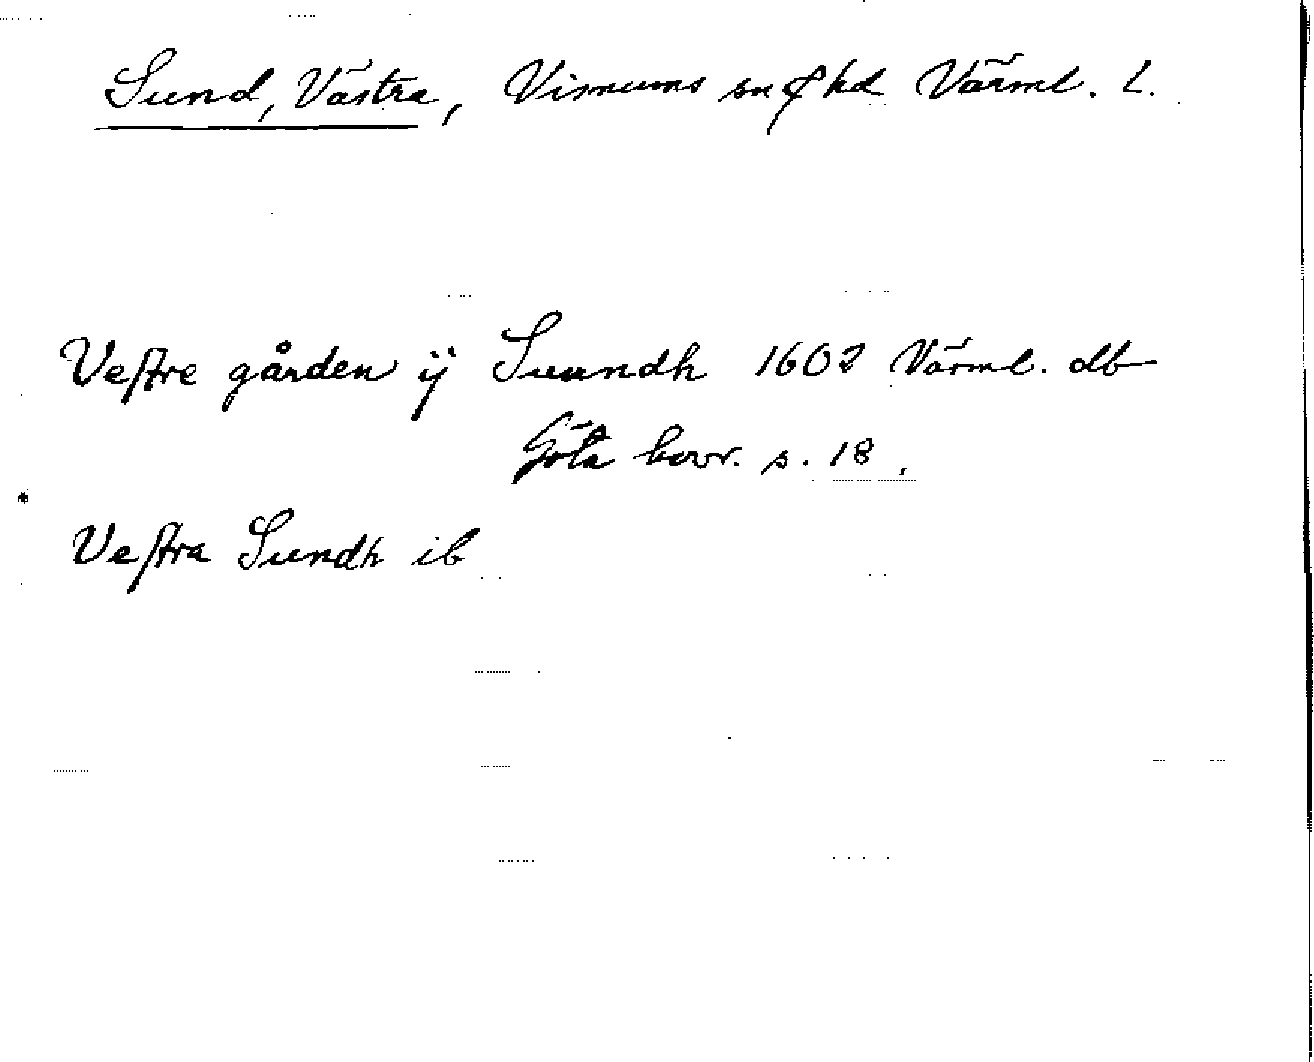 Sund, Västra, Visnums sn & hd Värml. L.
Veſtre gården ÿ Suundh 1602 Värml. db
Göta hovr. s. 18.
Veſtra Sundh ib